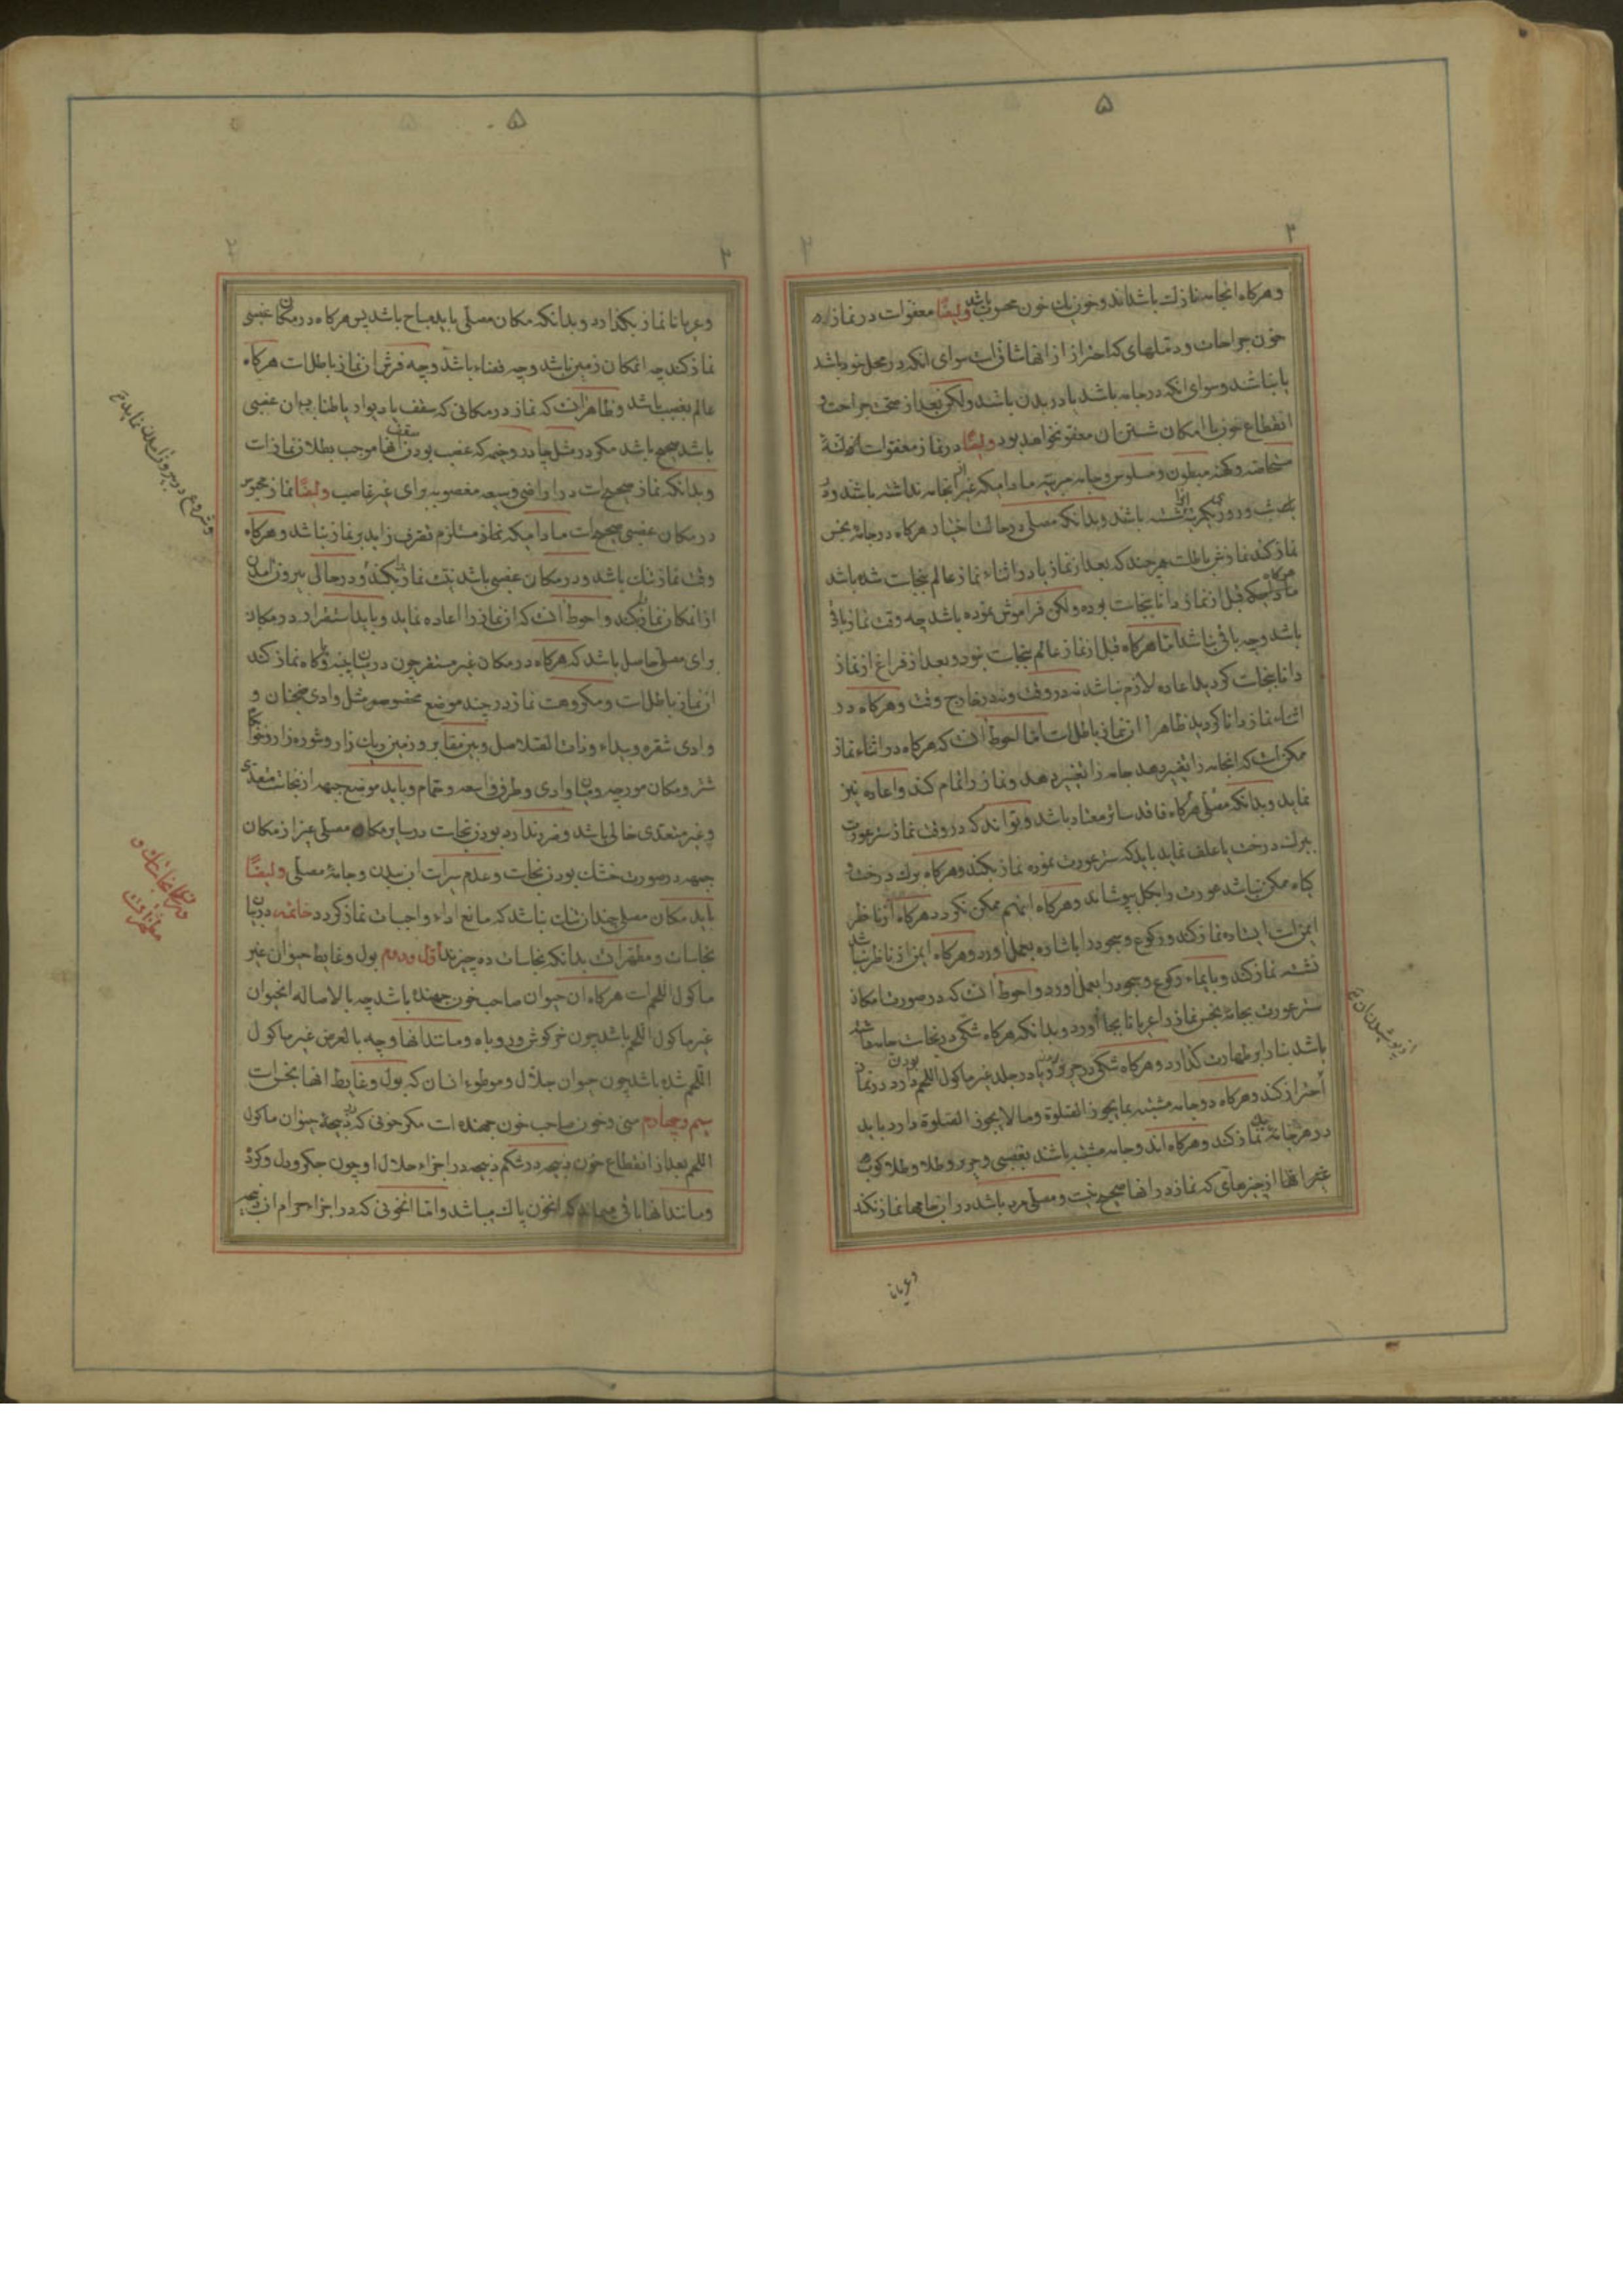 ۵
۳
وهرکاه انجامه نازک باشد اند و خون یک خون محسوب باشد وایضًا معفوات در نماز
خون جراحات و دملهای که احتراز از انها شاق است سوای انکه در محل خود باشد
یا نباشد و سوای انکه در جامه باشد یا در بدن باشد ولکن بعد از صحت جراحت و
انقطاع خون با امکان شستن ان معفو نخواهد بود وایضًا در نماز معفوات
مستحاضه و کهنه مبطون و مسلوس و جامه مربیه مادامیکه غیر از انجامه نداشته باشد و در
شب و روز یکمرتبه انرا شسته باشد و بدانکه مصلی در حالت اختیار هرکاه در جامهٔ نجس
نماز کند نمازش باطلست هر چند که بعد از نماز یا در اثناء نماز عالم بنجاست شده باشد
قبل از نماز دانا بنجاست بوده ولکن فراموش نموده باشد چه وقت نماز باقی
باشد و چه باقی نباشد اما هرکاه قبل از نماز عالم بنجاست نبود و بعد از فراغ از نماز
دانا بنجاست کردید اعاده لازم نباشد نه در وقت و نه در خارج وقت و هرکاه در
اثناء نماز دانا کردید ظاهرا ان نماز باطلست اما احوط انست که هرکاه در اثناء نماز
ممکن است که انجامه را تغییر دهد جامه را تغییر دهد و نماز را تمام کند و اعاده نیز
نماید و بدانکه مصلی هرکاه فاقد ساتر معتاد باشد و تواند که در وقت نماز ستر عورت
ببرک درخت یا علف نماید باید که ستر عورت نموده نماز بکند و هرکاه برک درخت و
کیاه ممکن نباشد عورت را بکل بپوشاند و هرکاه اینهم ممکن نکردد هرکاه از ناظر
ایمن است ایستاده نماز کند و رکوع و سجود را باشاره بعمل اورد و هرکاه ایمن از ناظر نباشد
نشسته نماز کند و بایماء رکوع و سجود را بعمل اورد و احوط انست که در صورت امکان
ستر عورت بجامهٔ نجس نماز را عریانا بجا اورد و بدانکه هرکاه شکی در نجاست جامه
باشد بنا را بر طهارت کذارد و هرکاه شکی در حریر بودن یا در جلد غیر ماکول اللحم بودن دارد در نماز
احتراز کند و هرکاه دو جامه مشتبه بما یجوز الصلوة و ما لا یجوز الصلوة دارد باید
در هر جامهٔ نماز کند و هرکاه اند و جامه مشتبه باشند بغصبی و حریر و طلا و طلا کوب و
غیر انها از چیزهای که نماز در انها صحیح نیست و مصلی مرد باشد در ان جامها نماز نکند
از پوشیدن ان
وعریانا
۵
۲
۳
وعریانا نماز بکذارد و بدانکه مکان مصلی باید مباح باشد پس هرکاه در مکان غصبی
نماز کند چه انمکان زمین باشد و چه فضاء باشد و چه فرش ان نماز باطل است هرکاه
عالم بغصب باشد و ظاهر انست که نماز در مکانی که سقف یا دیوار یا طناب ان غصبی
باشد صحیح باشد مکر در مثل چادر و خیمه که غصب بودن سقف انها موجب بطلان نماز است
و بدانکه نماز صحیح است در اراضی وسیعه مغصوبه برای غیر غاصب وایضًا نماز محبوس
در مکان غصبی صحیح است مادامیکه نماز مستلزم تصرف زاید بر نماز نباشد و هرکاه
وقت نماز تنک باشد و در مکان غصبی باشد نیت نماز بکند و در حالی بیرون امدن
از انمکان نماز کند و احوط انست که ان نماز را اعاده نماید و باید استقرار در مکان
برای مصلی حاصل باشد که هرکاه در مکان غیر مستقر چون در میان پنبه و کاه نماز کند
ان نماز باطل است و مکروهست نماز در چند موضع مخصوص مثل وادی ضجنان و
وادی شقره و بیداء و ذات الصلاصل و بین مقابر و زمین ریک زار و شوره زار و خوابکاه
شتر و مکان مورچه و میان وادی و طرق واسعه و حمام و باید موضع جبهه از نجاست متعدی
و غیر متعدی خالی باشد و ضرر ندارد بودن نجاست در سایر مکان مصلی غیر از مکان
جبهه در صورت خشک بودن نجاست و عدم سرایت ان ببدن و جامهٔ مصلی وایضًا
باید مکان مصلی چندان تنک نباشد که مانع اداء واجبات نماز کردد خاتمه در بیان
نجاسات و مطهرات بدانکه نجاسات ده چیزند اول و دوم بول و غایط حیوان غیر
ماکول اللحم است هرکاه ان حیوان صاحب خون جهنده باشد چه بالاصاله انحیوان
غیر ماکول اللحم باشد چون خرکوش و روباه و مانند انها و چه بالعرض غیر ماکول
اللحم شده باشد چون حیوان جلال و موطوء انسان که بول و غایط انها نجس است
سیم و چهارم منی و خون صاحب خون جهنده است مکر خونی که ذبیحهٔ حیوان ماکول
اللحم بعد از انقطاع خون ذبیحه در شکم ذبیحه در اجزاء حلال او چون جکر و دل و کرده
و مانند انها باقی میماند که انخون پاک میباشد و اما انخونی که در اجزاء حرام ان ذبیحه
وشروع در بیرون امدن نماید